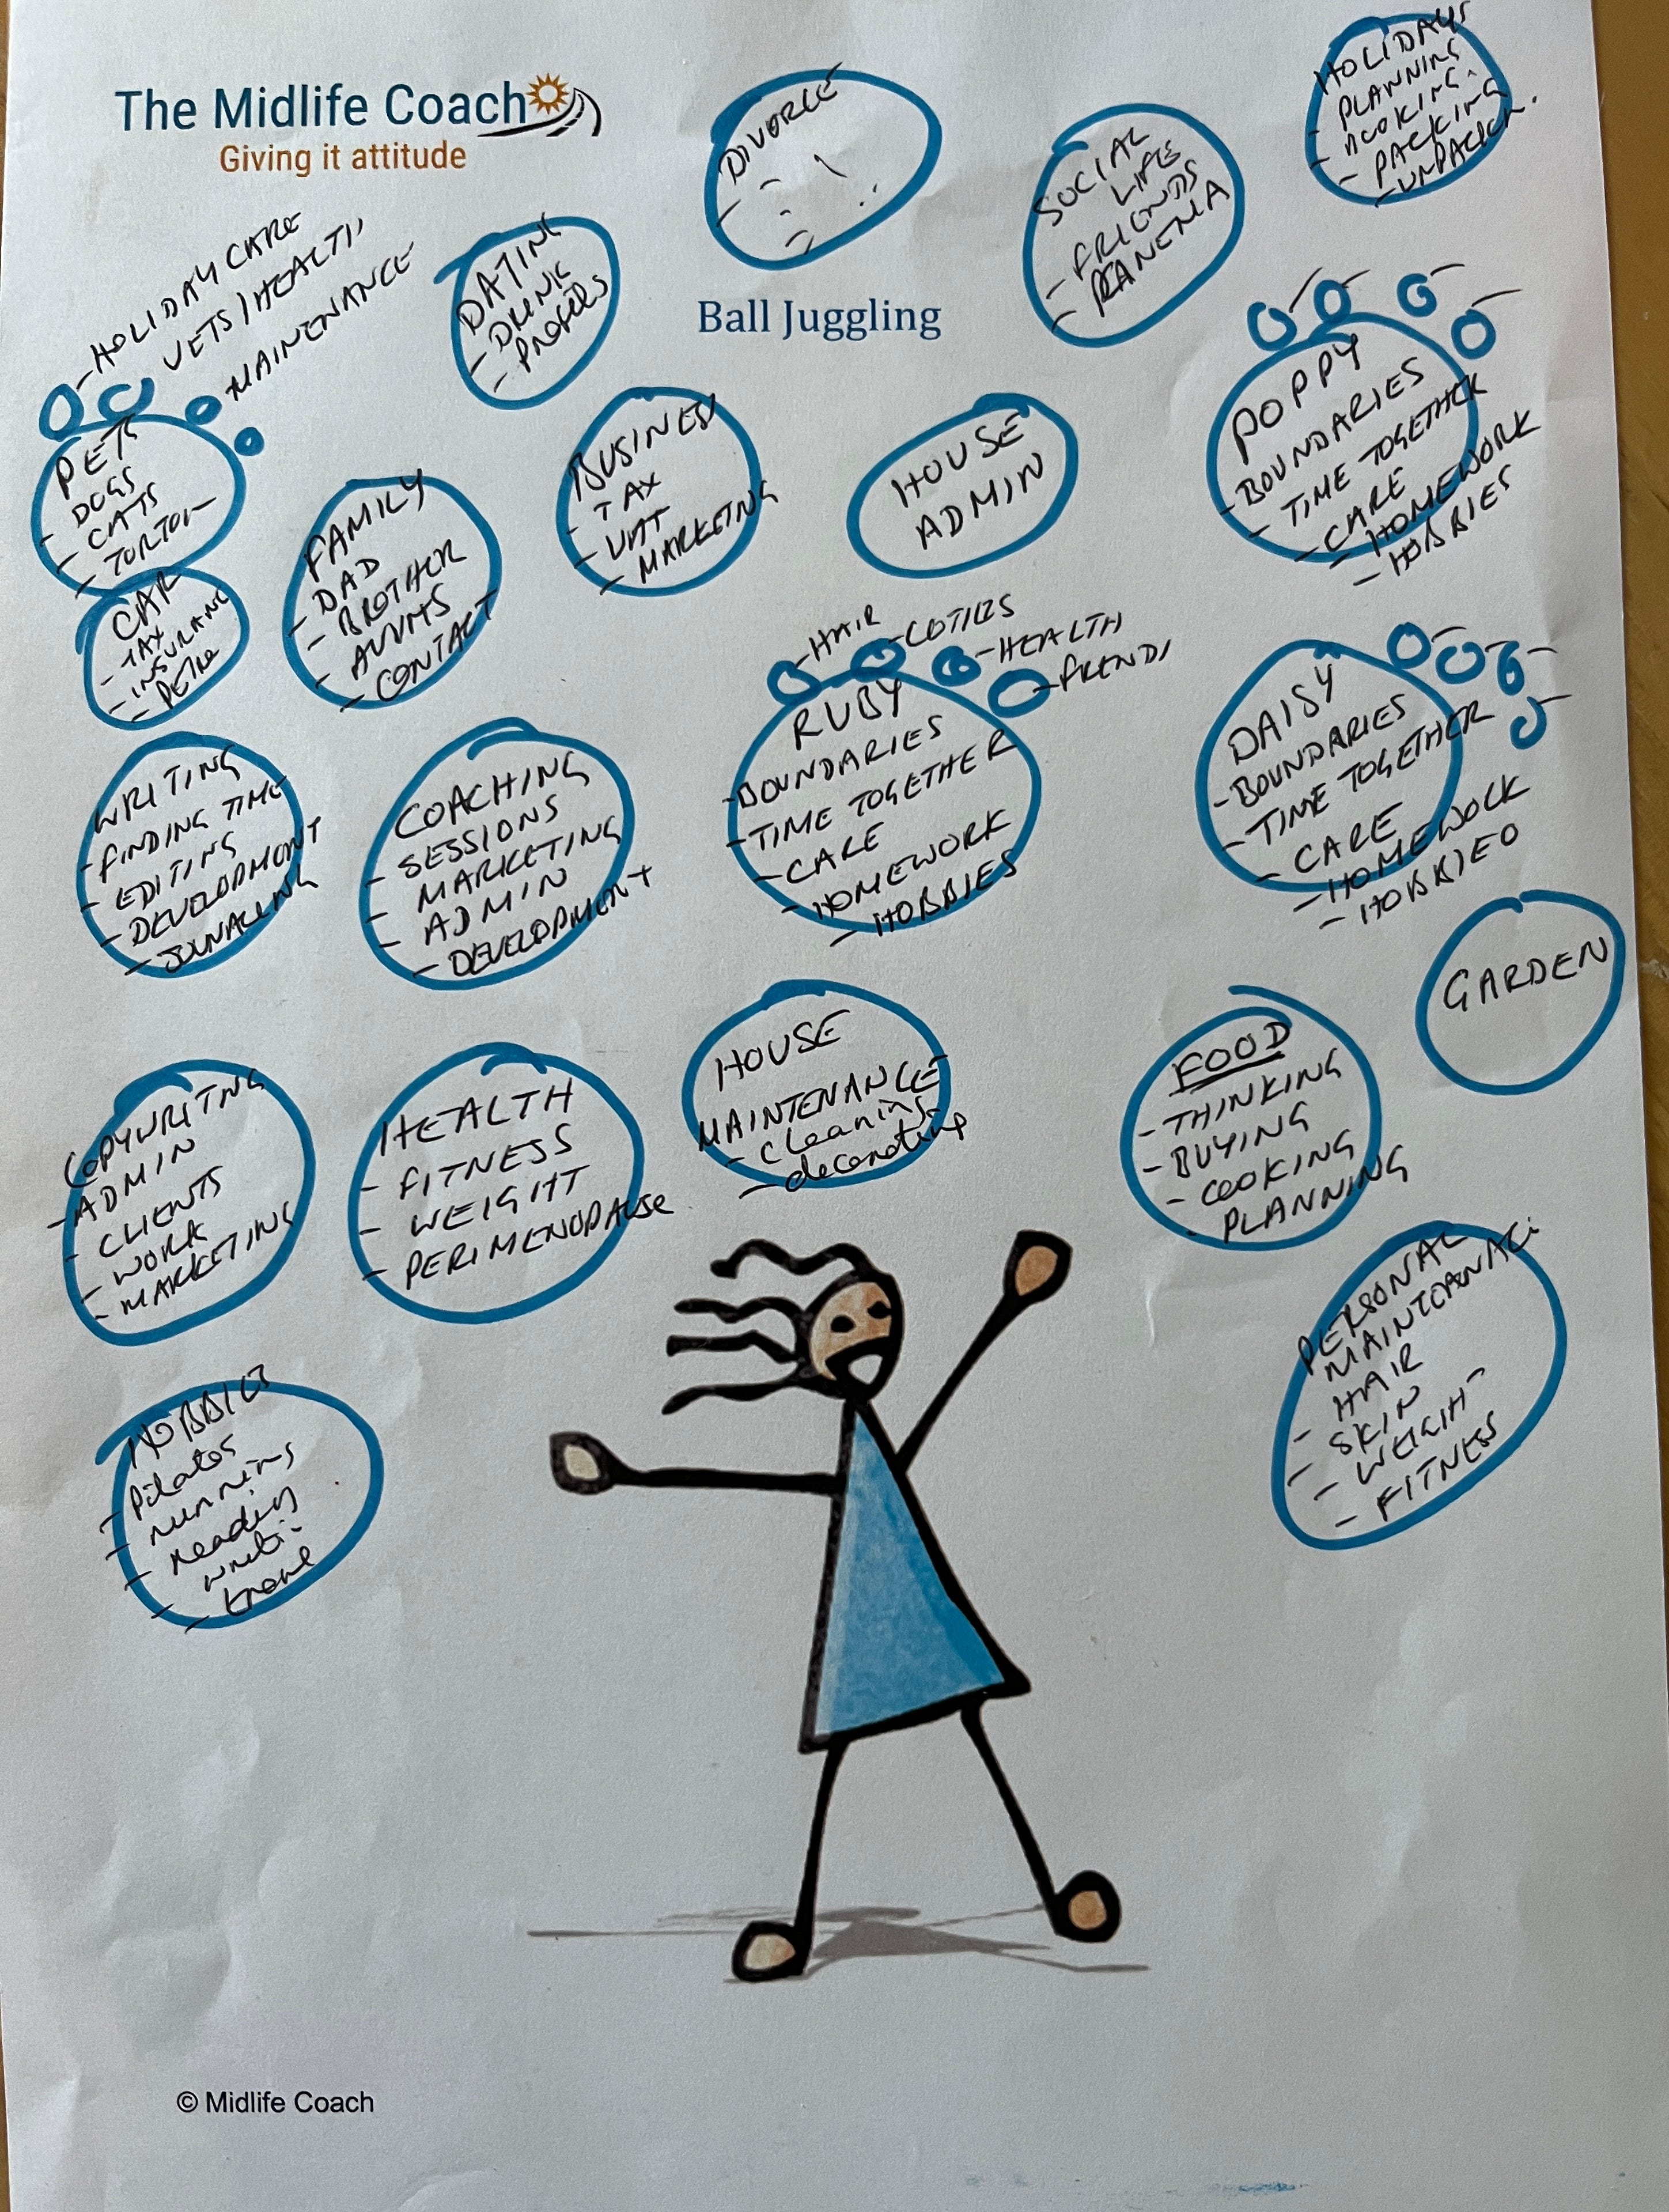 The Midlife Coach
Giving it attitude
DIVORCE
SOCIAL
LIFE
- FRIENDS
HOLIDAYS
- PLANNING
- BOOKING
- PACKING
- UNPACKN.
- HOLIDAY CARE
VETS/HEALTH
MAINENANCE
DATING
- DRINK
- PROFILES
Ball Juggling
PETS
- DOGS
- CATS
- TORTOI
FAMILY
- DAD
- BROTHER
- AUNTS
- CONTACT
BUSINESS
- TAX
- VAT
- MARKETING
HOUSE
ADMIN
POPPY
- BOUNDARIES
- TIME TOGETHER
- CARE
- HOMEWORK
- HOBBIES
CAR
- TAX
- INSURANC
- PETROL
- HAIR
- HEALTH
- FRENDS
RUBY
- BOUNDARIES
- TIME TOGETHER
- CARE
- HOMEWORK
- HOBBIES
DAISY
- BOUNDARIES
- TIME TOGETHER
- CARE
- HOMEWORK
- HOBBIES
WRITING
- FINDING TIME
- EDITING
- DEVELOPMENT
- JOUNALLING
COACHING
- SESSIONS
- MARKETING
- ADMIN
- DEVELOPMENT
GARDEN
COPYWRITNG
- ADMIN
- CLIENTS
- WORK
- MARKETING
HEALTH
- FITNESS
- WEIGHT
- PERIMENOPAUSE
HOUSE
MAINTENANCE
- cleaning
- decorating
FOOD
- THINKING
- BUYING
- COOKING
- PLANNING
PERSONAL
MAINTENANCE
- HAIR
- SKIN
- WEIGHT
- FITNESS
HOBBIES
- Pilates
- running
- reading
- travel
© Midlife Coach